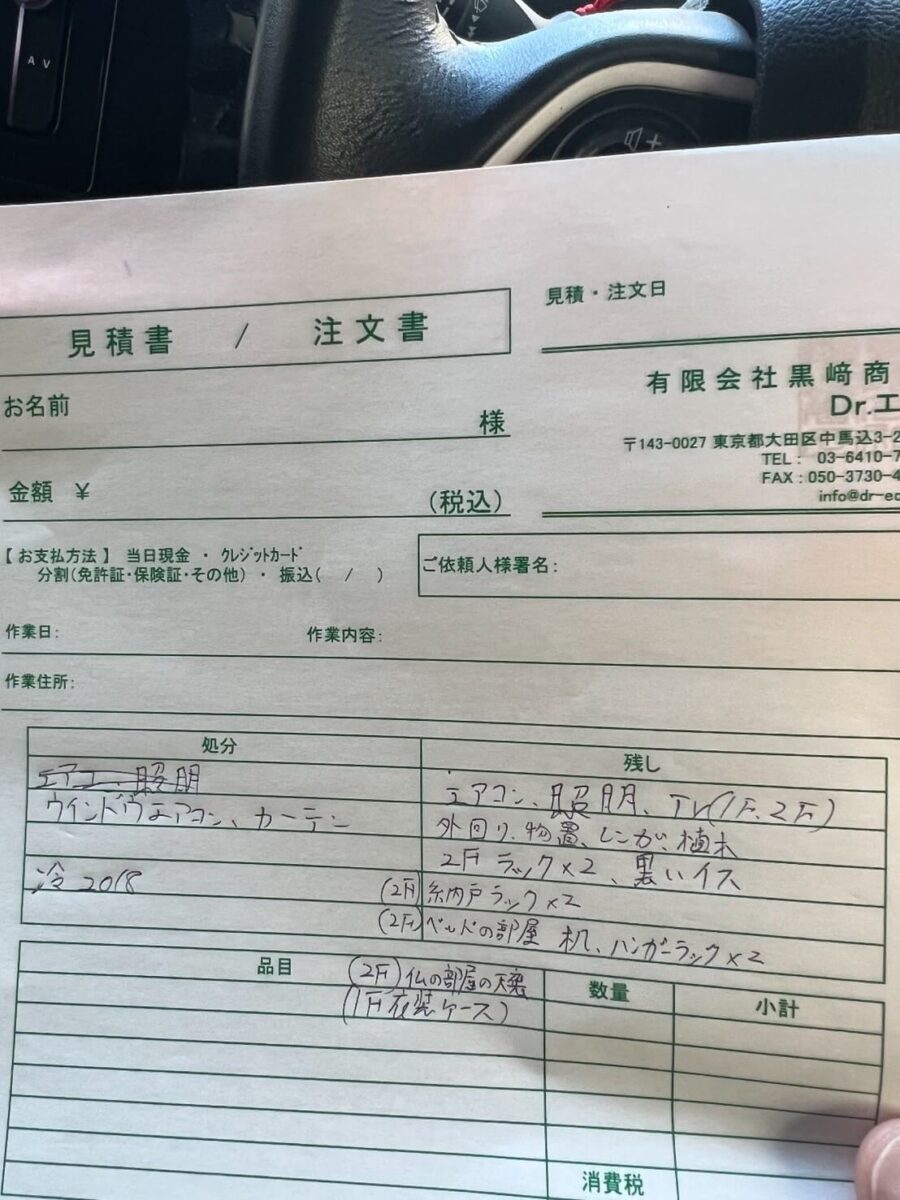 見積書 / 注文書
見積・注文日
お名前 様
有限会社黒﨑商
Dr.エ
〒143-0027 東京都大田区中馬込3-2
TEL: 03-6410-7
FAX:050-3730-4
info@dr-ec
金額 ¥ (税込)
【お支払方法】 当日現金 ・ クレジットカード
分割(免許証・保険証・その他) ・ 振込( / )
ご依頼人様署名:
作業日: 作業内容:
作業住所:
処分
エアコン、照明
ウインドウエアコン、カーテン
冷 2018
残し
エアコン、照明、TV(1F.2F)
外回り、物置、レンガ、植木
2F ラック×2、黒いイス
(2F) 納戸ラック×2
(2F) ベッドの部屋 机、ハンガーラック×2
(2F) 仏の部屋の
(1F衣装ケース)
品目 数量 小計
消費税